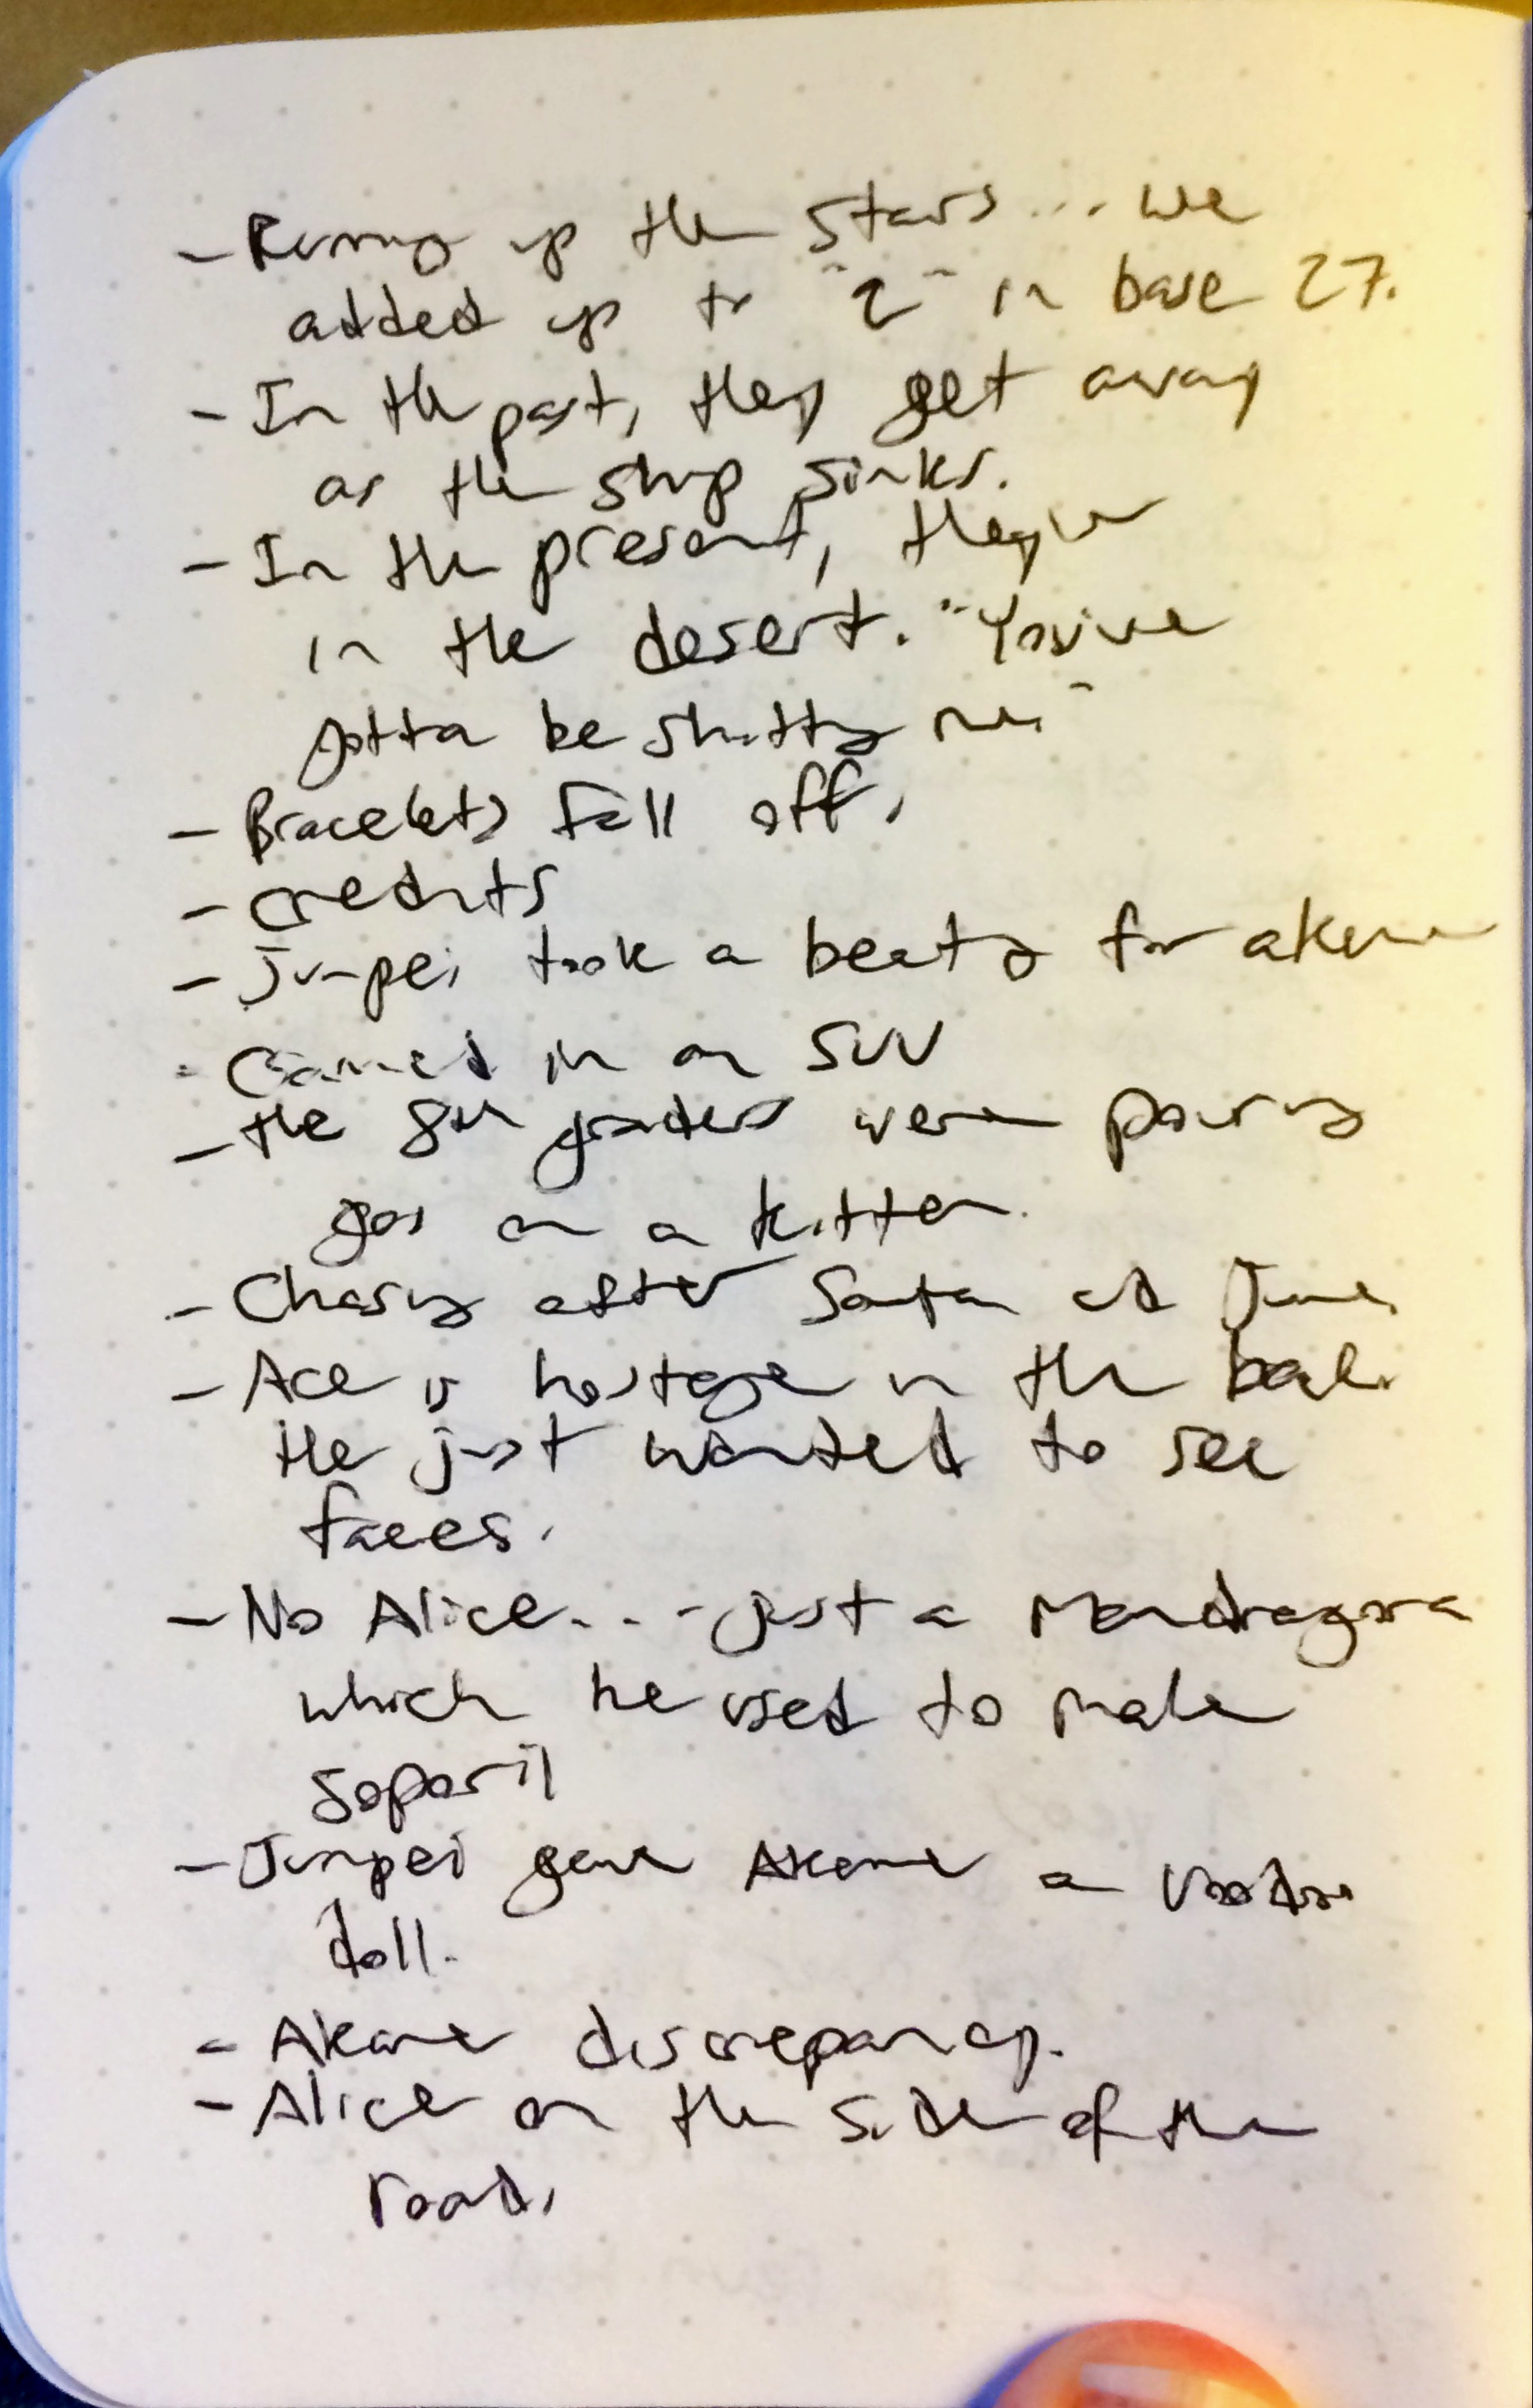 - Running up the stairs... we
added up to "q" in base 27.
- In the past, they get away
as the ship sinks.
- In the present, they're
in the desert. "You've
gotta be shitting me."
- Bracelets fall off.
- credits
- Junpei took a beating for akane
- in an SUV
- the 8th graders were pouring
gas on a kitten.
- Chasing after Santa and June.
- Ace is hostage in the back.
He just wanted to see
faces.
- No Alice... just a Mandragora
which he used to make
Soporil
- Junpei gave Akane a voodoo
doll.
- Akane discrepancy.
- Alice on the side of the
road.